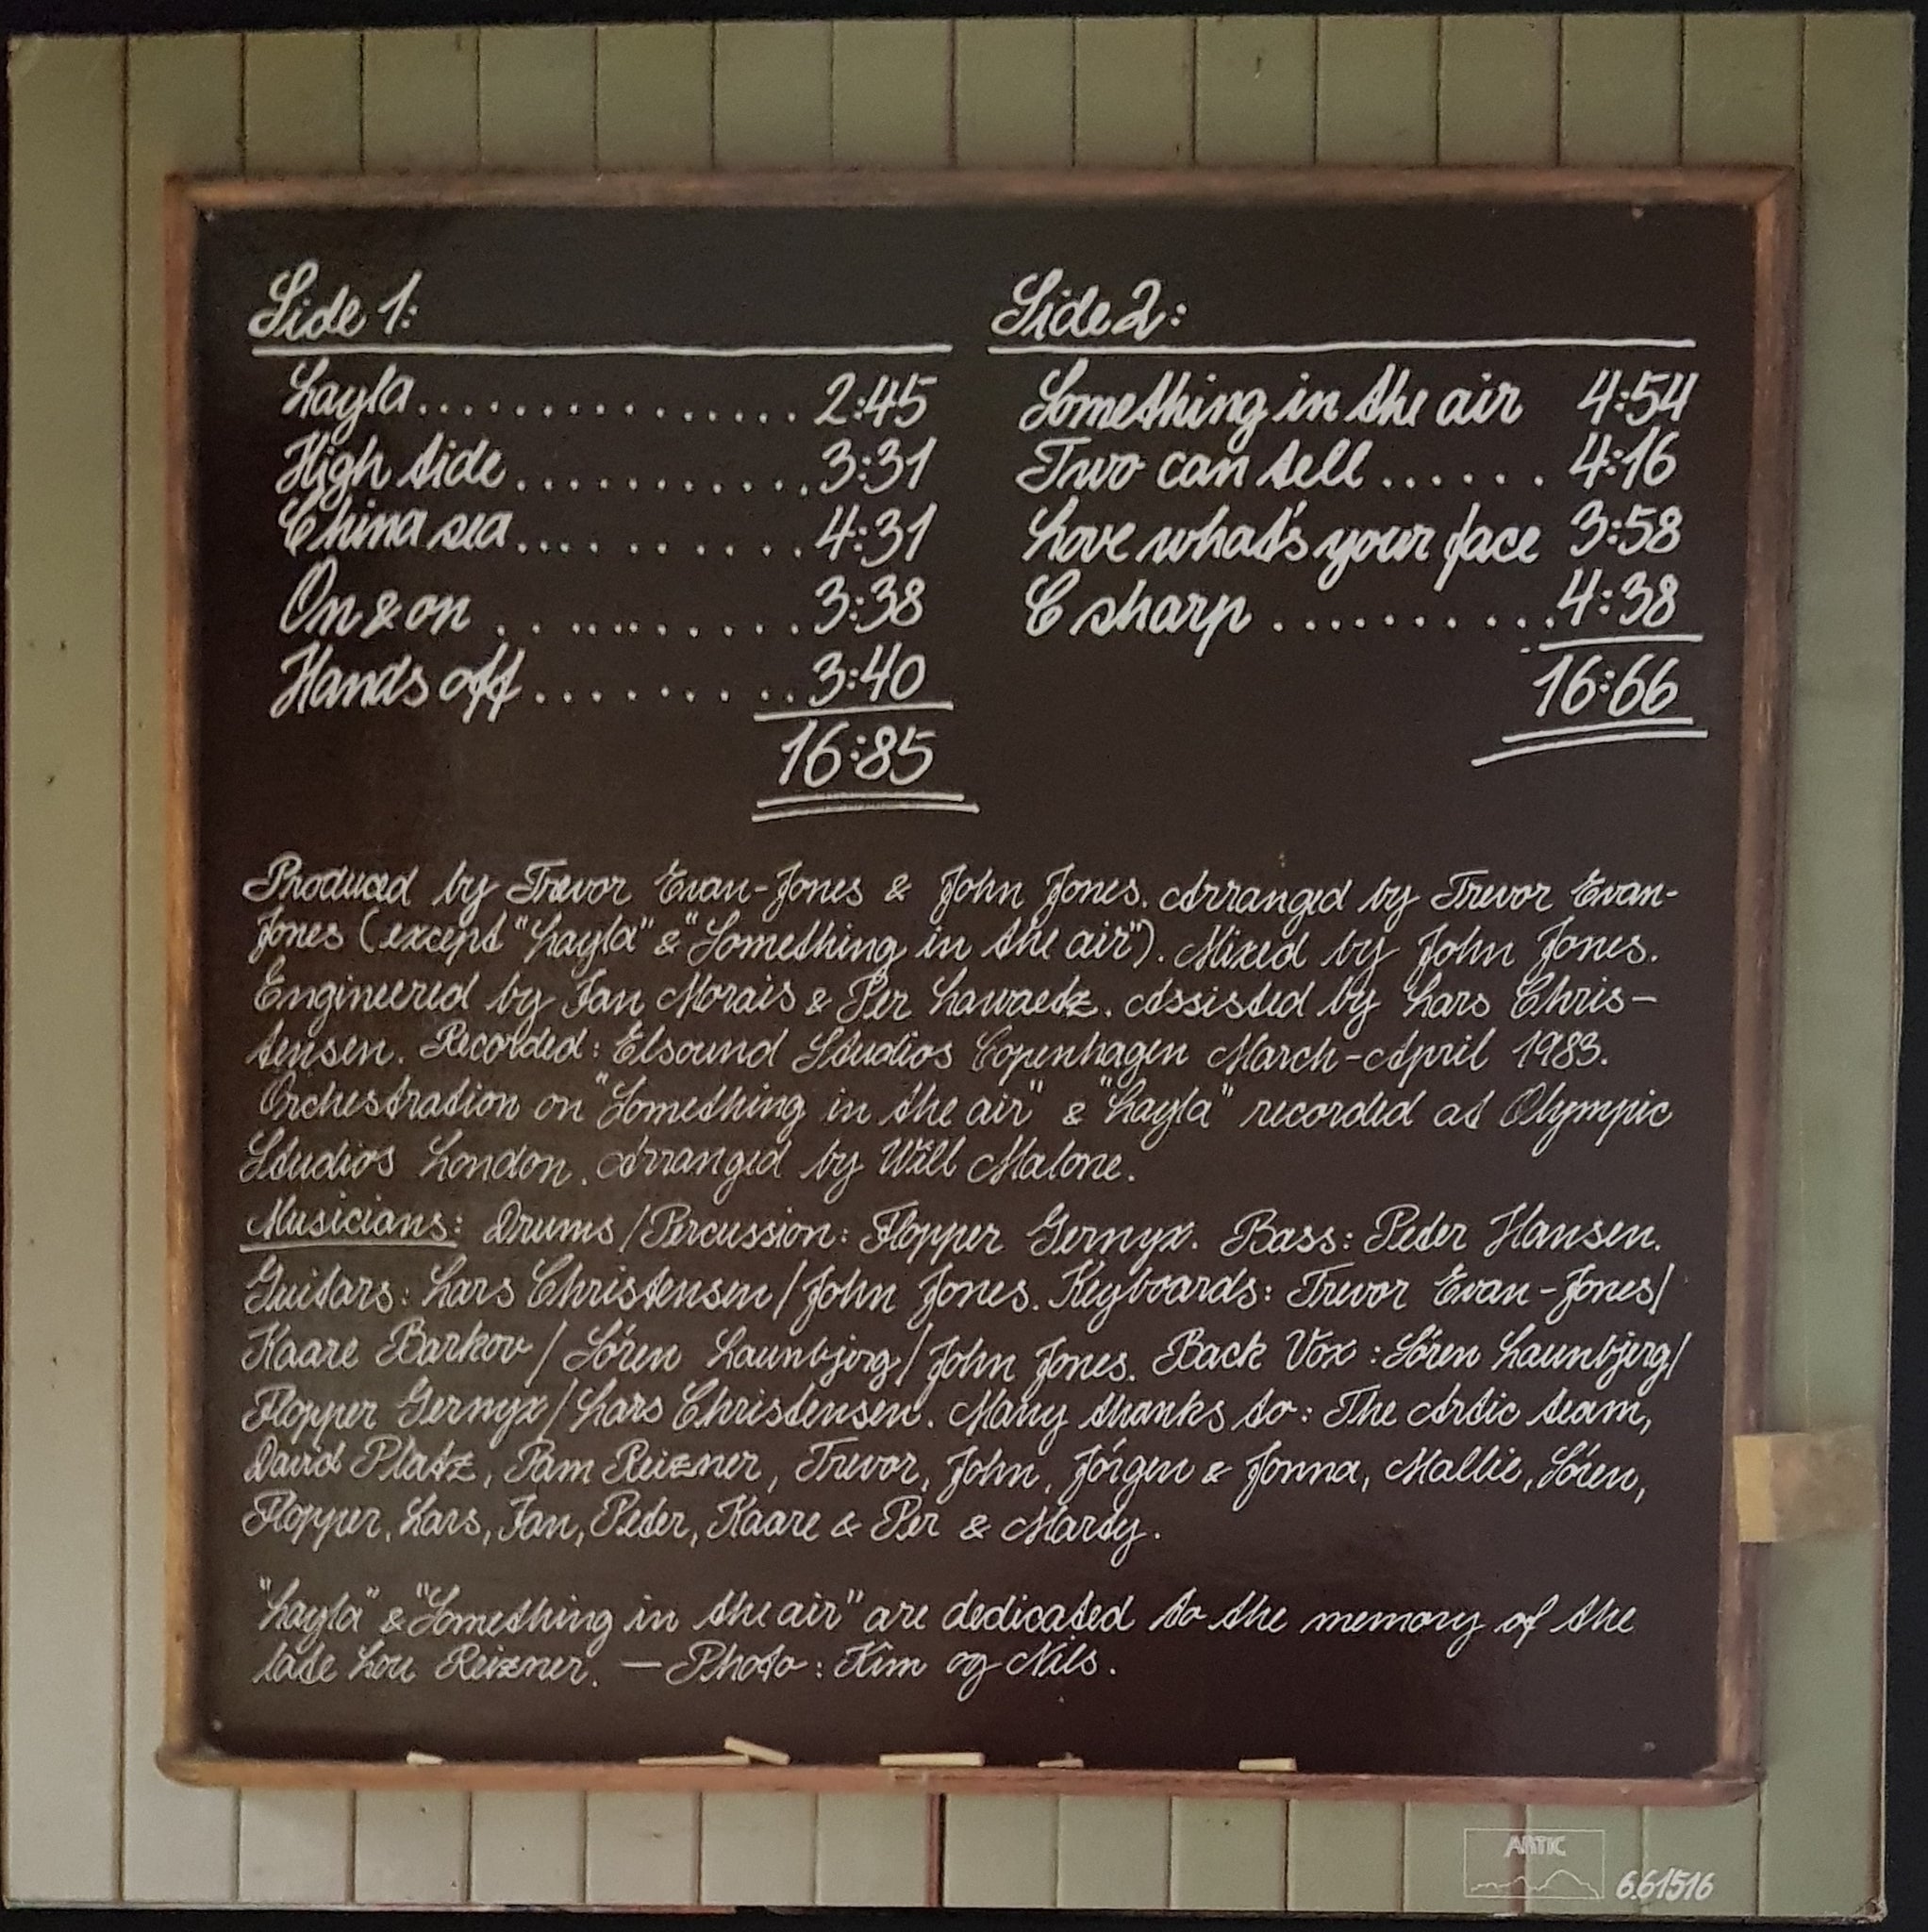 Side 1:
Layla................ 2:45
High tide............ 3:31
China sea............ 4:31
On & on ............. 3:38
Hands off............ 3:40
16:85
Side 2:
Something in the air 4:54
Two can tell ...... 4:16
Love what's your face 3:58
C sharp ........... 4:38
16:66
Produced by Trevor Evan-Jones & John Jones. Arranged by Trevor Evan-
Jones (except "Layla" & "Something in the air"). Mixed by John Jones.
Engineered by Jan Morais & Per Lawaetz. Assisted by Lars Chris-
tensen. Recorded: Elsound Studios Copenhagen March-April 1983.
Orchestration on "Something in the air" & "Layla" recorded at Olympic
Studios London. Arranged by Will Malone.
Musicians: Drums/Percussion: Flopper Gernyx. Bass: Peder Hansen.
Guitars: Lars Christensen/John Jones. Keyboards: Trevor Evan-Jones/
Kaare Barkov/Sóren Launbjerg/John Jones. Back Vox: Sóren Launbjerg/
Flopper Gernyx/Lars Christensen. Many thanks to: The Artic team,
David Platz, Pam Reizner, Trevor, John, Jórgen & Jonna, Mallie, Sóren,
Flopper, Lars, Jan, Peder, Kaare & Per & Marty.
"Layla" & "Something in the air" are dedicated to the memory of the
late Lou Reizner. — Photo: Kim og Nils.
ARTIC
6.61516